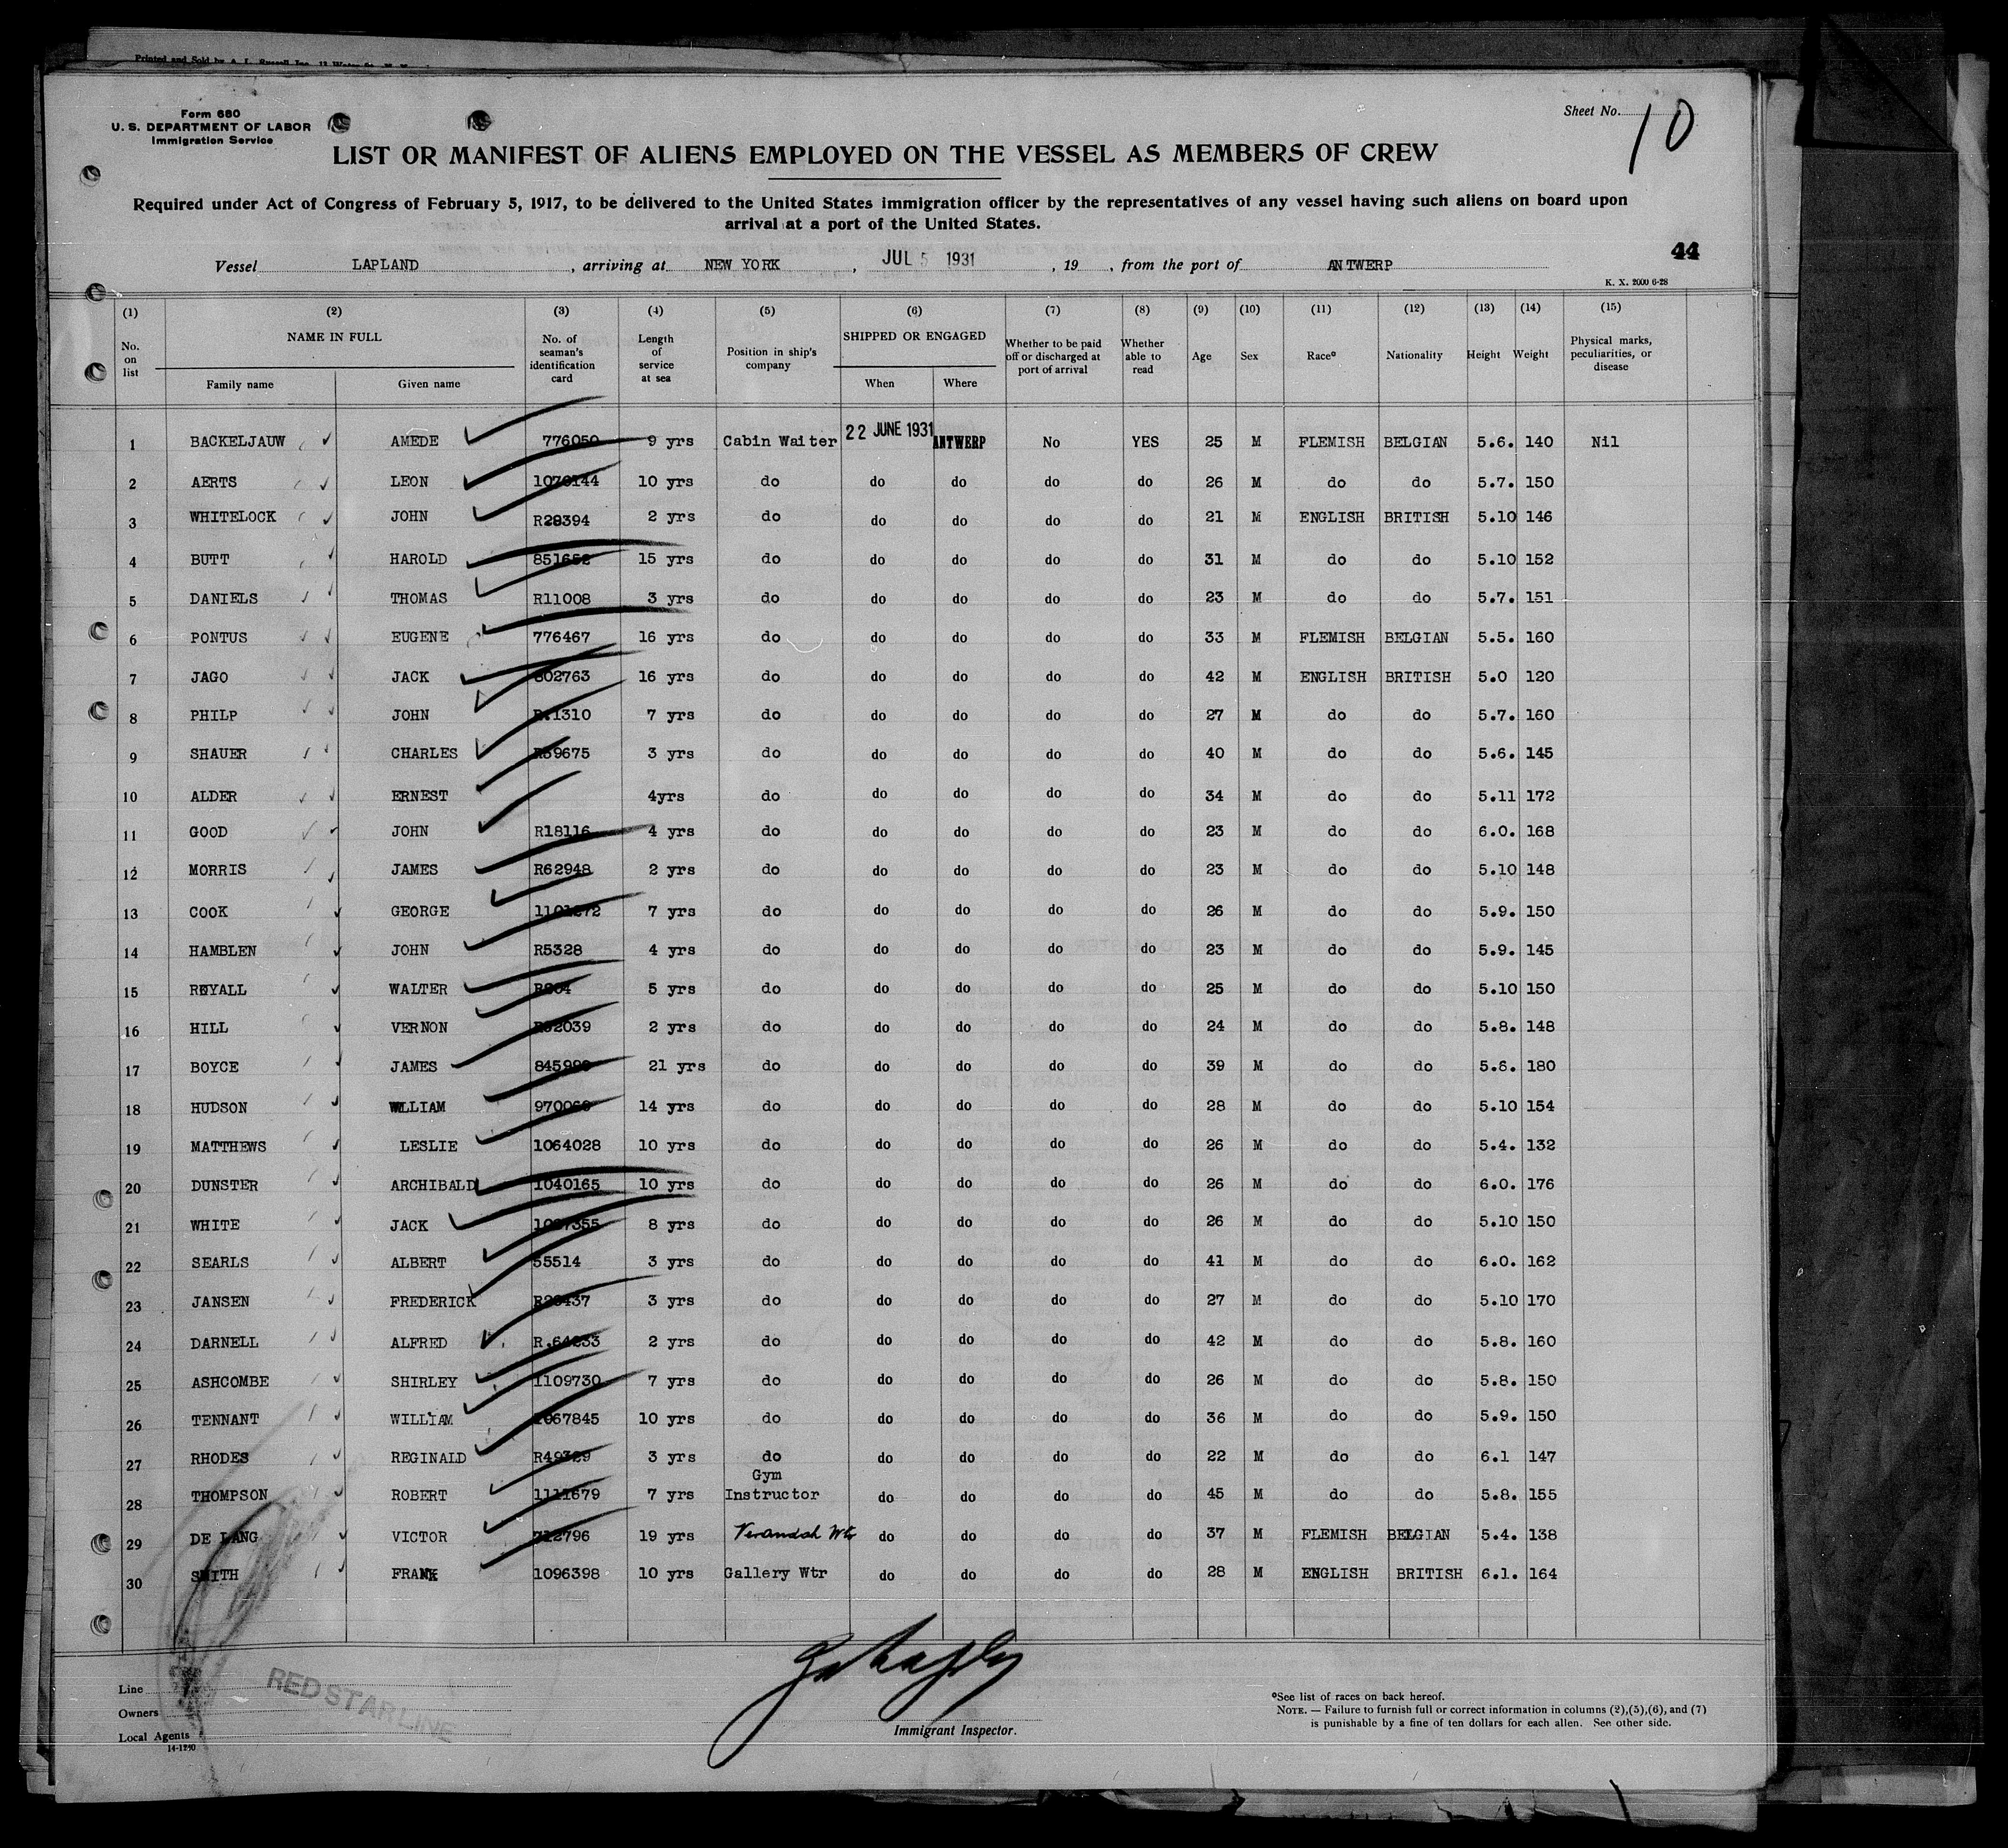 Printed and Sold by A. L. Russell Inc.
Form 680
U. S. DEPARTMENT OF LABOR
Immigration Service
Sheet No. 10
LIST OR MANIFEST OF ALIENS EMPLOYED ON THE VESSEL AS MEMBERS OF CREW
Required under Act of Congress of February 5, 1917, to be delivered to the United States immigration officer by the representatives of any vessel having such aliens on board upon
arrival at a port of the United States.
44
Vessel LAPLAND, arriving at NEW YORK, JUL 5 1931, 19 , from the port of ANTWERP
K. X. 2000 6-28
(1) (2) (3) (4) (5) (6) (7) (8) (9) (10) (11) (12) (13) (14) (15)
No. on list NAME IN FULL Family name Given name No. of seaman's identification card Length of service at sea Position in ship's company SHIPPED OR ENGAGED When Where Whether to be paid off or discharged at port of arrival Whether able to read Age Sex Race* Nationality Height Weight Physical marks, peculiarities, or disease
1 BACKELJAUW AMEDE 776050 9 yrs Cabin Waiter 22 JUNE 1931 ANTWERP No YES 25 M FLEMISH BELGIAN 5.6. 140 Nil
2 AERTS LEON 10 yrs do do do do do 26 M do do 5.7. 150
3 WHITELOCK JOHN R28394 2 yrs do do do do do 21 M ENGLISH BRITISH 5.10 146
4 BUTT HAROLD 851652 15 yrs do do do do do 31 M do do 5.10 152
5 DANIELS THOMAS R11008 3 yrs do do do do do 23 M do do 5.7. 151
6 PONTUS EUGENE 776467 16 yrs do do do do do 33 M FLEMISH BELGIAN 5.5. 160
7 JAGO JACK 802763 16 yrs do do do do do 42 M ENGLISH BRITISH 5.0 120
8 PHILP JOHN R.1310 7 yrs do do do do do 27 M do do 5.7. 160
9 SHAUER CHARLES R39675 3 yrs do do do do do 40 M do do 5.6. 145
10 ALDER ERNEST 4yrs do do do do do 34 M do do 5.11 172
11 GOOD JOHN R18116 4 yrs do do do do do 23 M do do 6.0. 168
12 MORRIS JAMES R62948 2 yrs do do do do do 23 M do do 5.10 148
13 COOK GEORGE 7 yrs do do do do do 26 M do do 5.9. 150
14 HAMBLEN JOHN R5328 4 yrs do do do do do 23 M do do 5.9. 145
15 ROYALL WALTER 5 yrs do do do do do 25 M do do 5.10 150
16 HILL VERNON 2 yrs do do do do do 24 M do do 5.8. 148
17 BOYCE JAMES 21 yrs do do do do do 39 M do do 5.6. 180
18 HUDSON WILLIAM 14 yrs do do do do do 28 M do do 5.10 154
19 MATTHEWS LESLIE 1064028 10 yrs do do do do do 26 M do do 5.4. 132
20 DUNSTER ARCHIBALD 1040165 10 yrs do do do do do 26 M do do 6.0. 176
21 WHITE JACK 8 yrs do do do do do 26 M do do 5.10 150
22 SEARLS ALBERT 55514 3 yrs do do do do do 41 M do do 6.0. 162
23 JANSEN FREDERICK 3 yrs do do do do do 27 M do do 5.10 170
24 DARNELL ALFRED 2 yrs do do do do do 42 M do do 5.8. 160
25 ASHCOMBE SHIRLEY 1109730 7 yrs do do do do do 26 M do do 5.8. 150
26 TENNANT WILLIAM 1067845 10 yrs do do do do do 36 M do do 5.9. 150
27 RHODES REGINALD 3 yrs do do do do do 22 M do do 6.1 147
28 THOMPSON ROBERT 1111679 7 yrs Gym Instructor do do do do 45 M do do 5.8. 155
29 DE LANG VICTOR 712796 19 yrs Verandah Wtr do do do do 37 M FLEMISH BELGIAN 5.4. 138
30 SMITH FRANK 1096398 10 yrs Gallery Wtr do do do do 28 M ENGLISH BRITISH 6.1. 164
Line
Owners
Local Agents
14-1240
RED STAR LINE
Immigrant Inspector.
*See list of races on back hereof.
NOTE. — Failure to furnish full or correct information in columns (2),(5),(6), and (7)
is punishable by a fine of ten dollars for each alien. See other side.